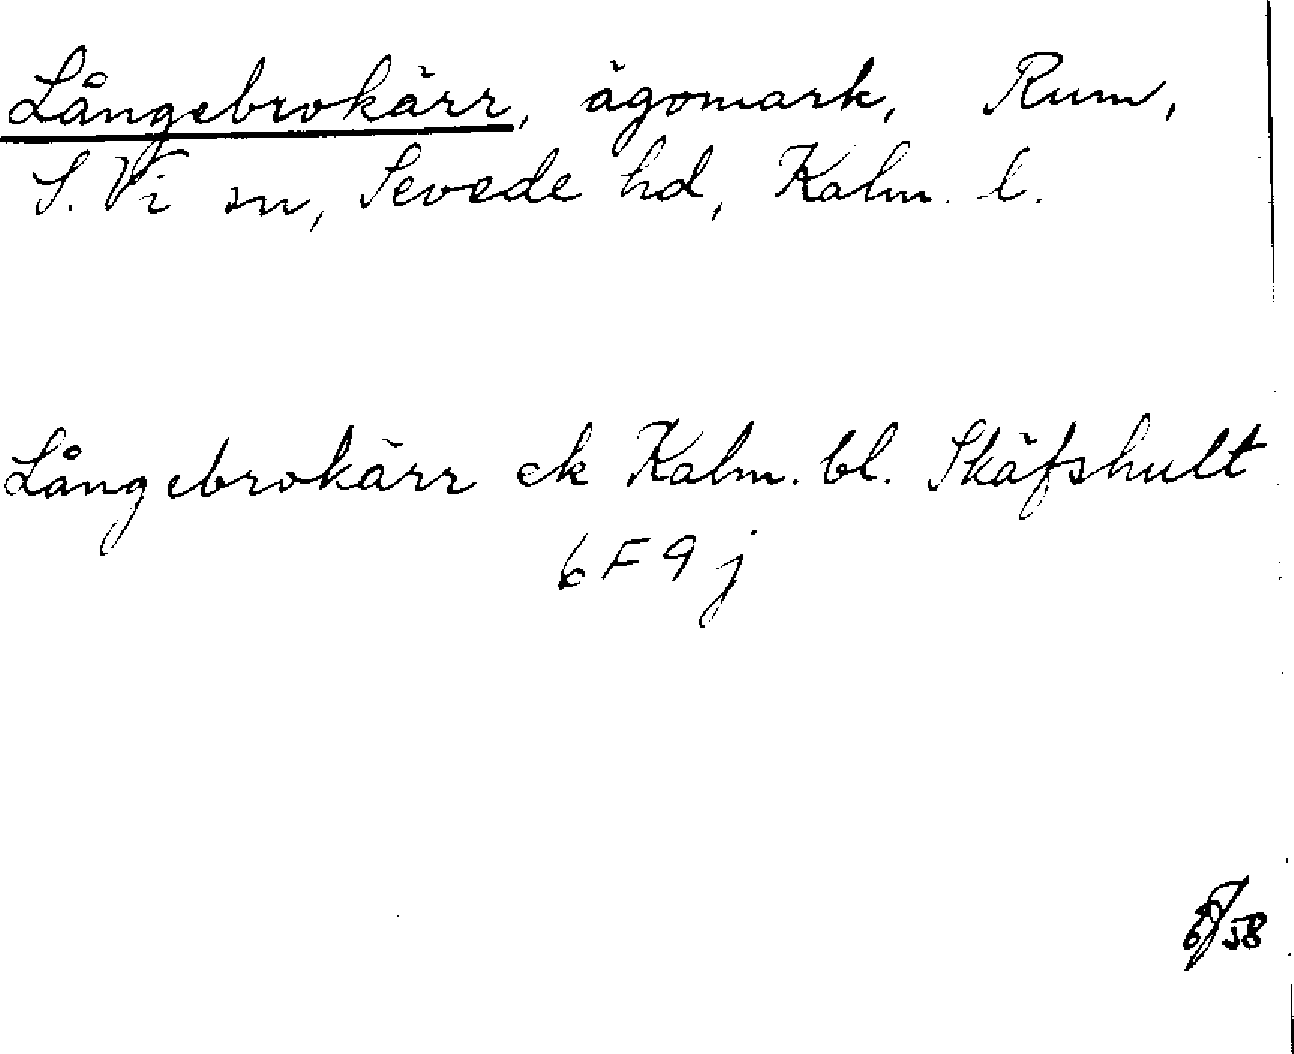 Långebrokärr, ägomark, Rum,
S. Vi sn, Sevede hd, Kalm. l.
Långebrokärr ek Kalm. bl. Skäfshult
6 F 9 j